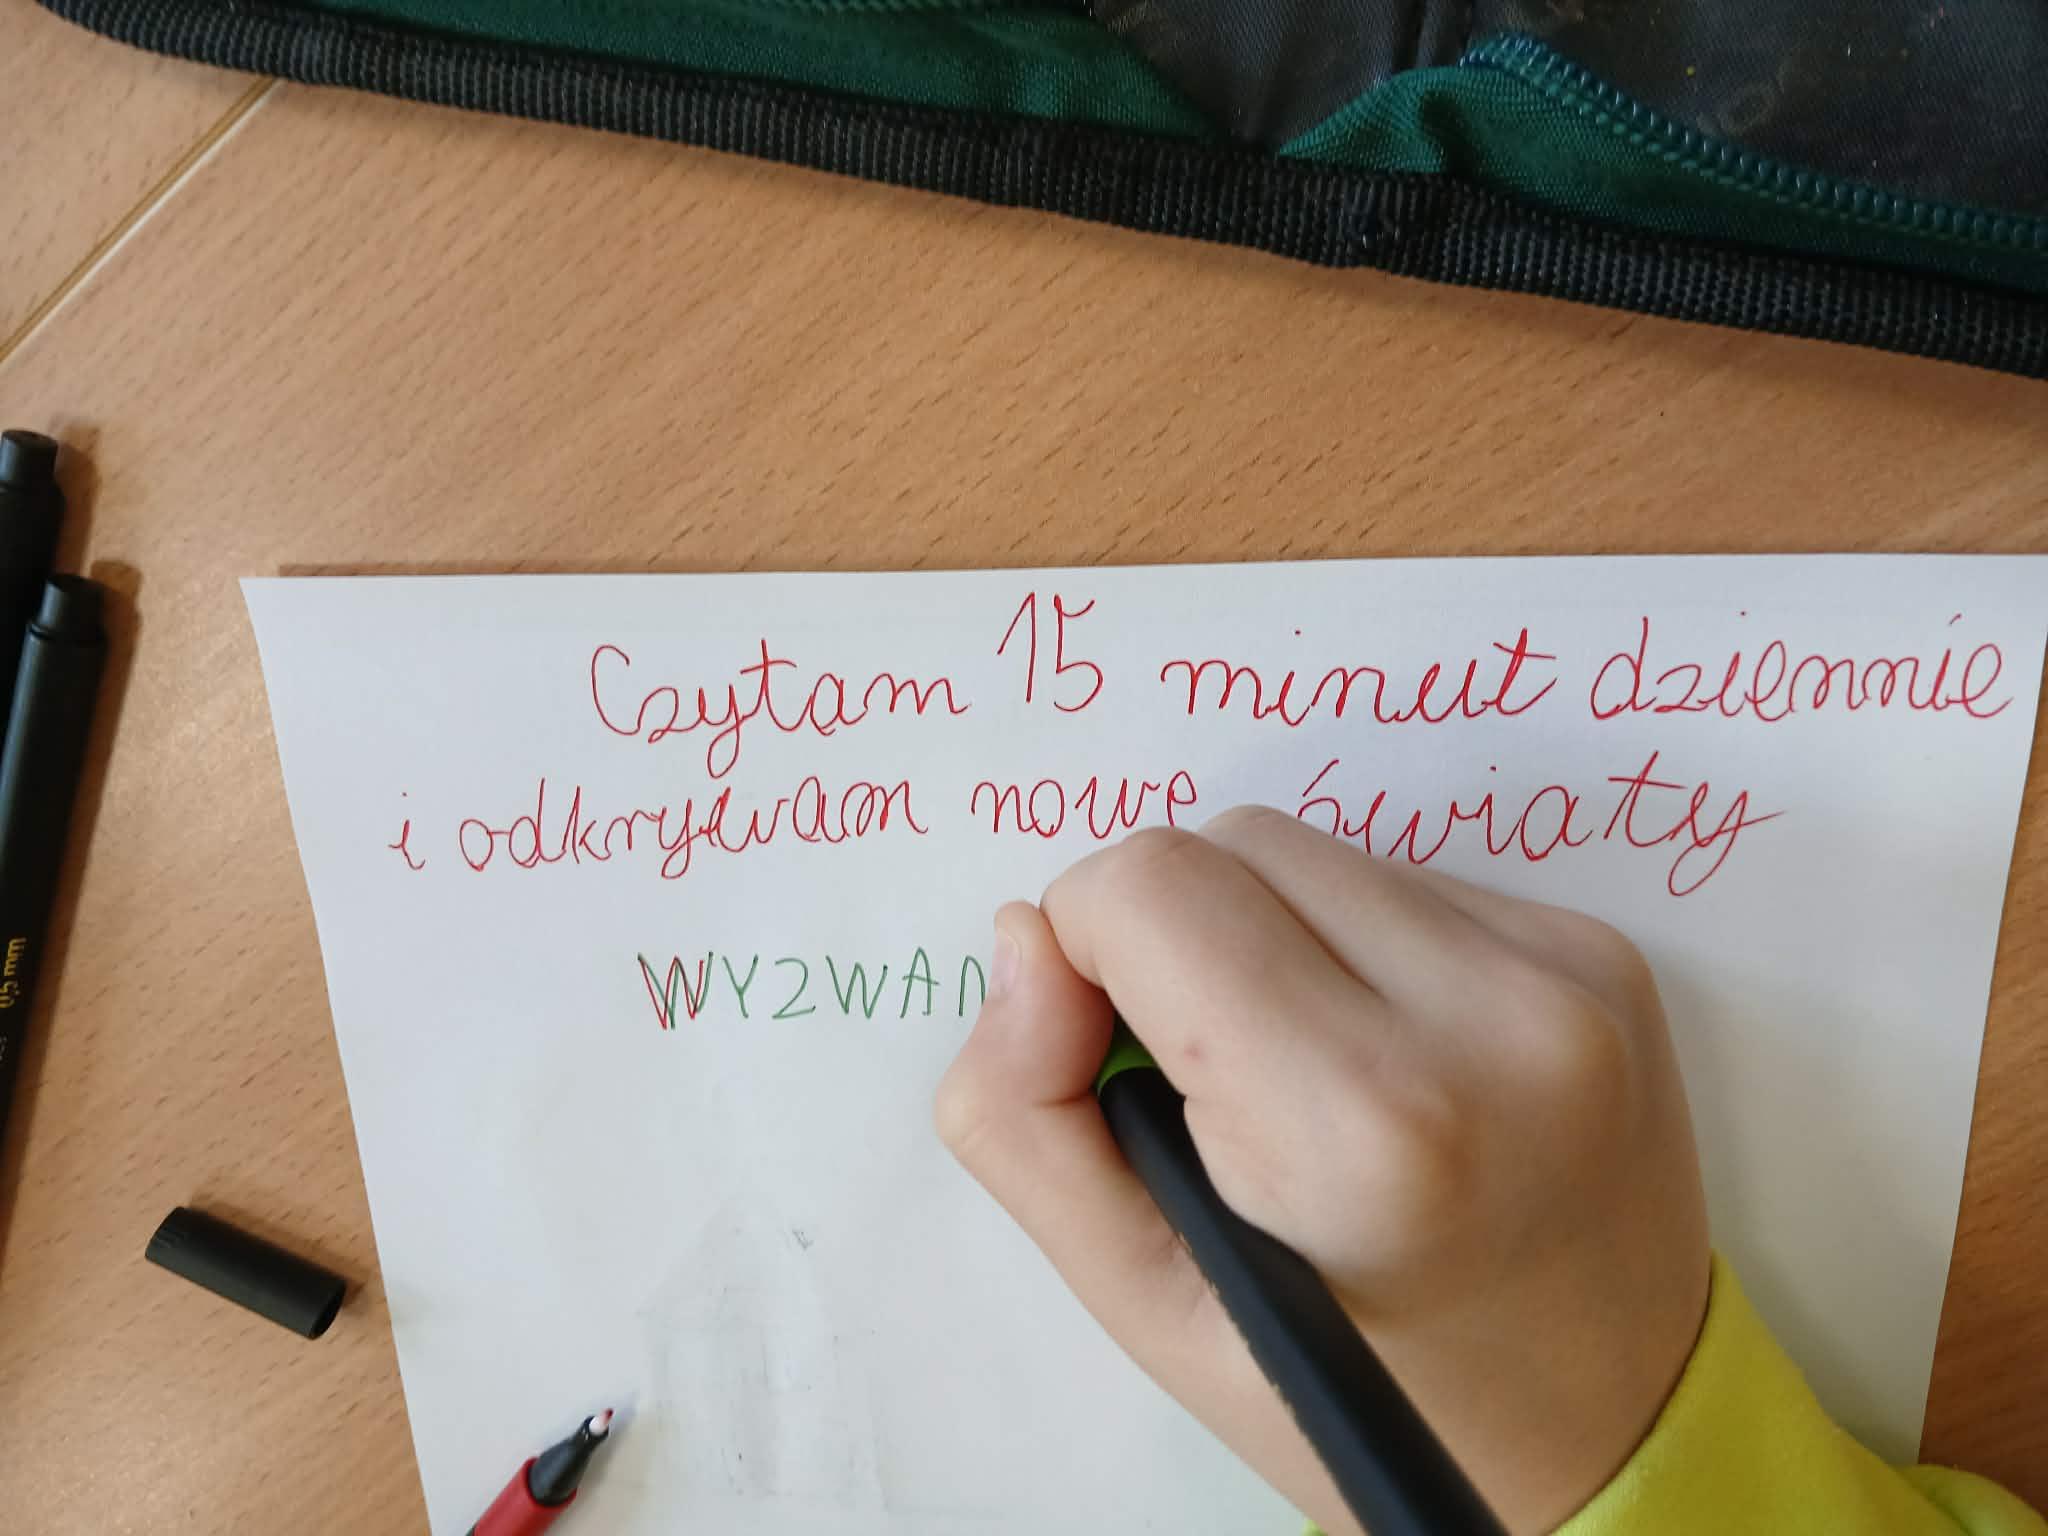 Czytam 15 minut dziennie
i odkrywam nowe światy
WYZWAN
0,50 mm